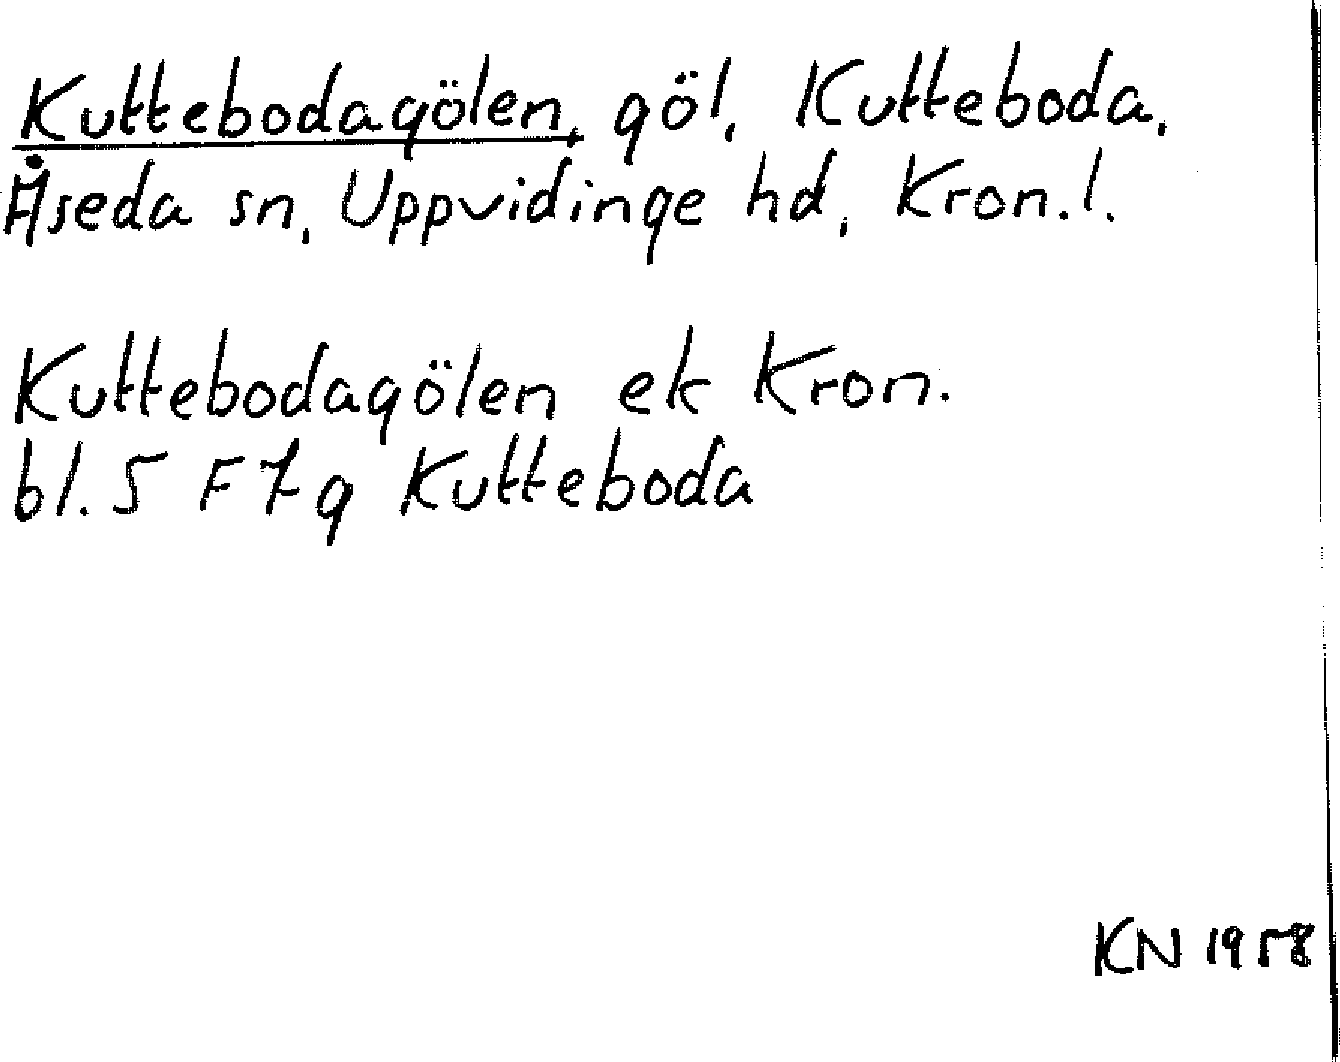 Kuttebodagölen, göl, Kutteboda,
Åseda sn, Uppvidinge hd, Kron.l.
Kuttebodagölen ek Kron.
bl. 5 F7g Kutteboda
KN 1958